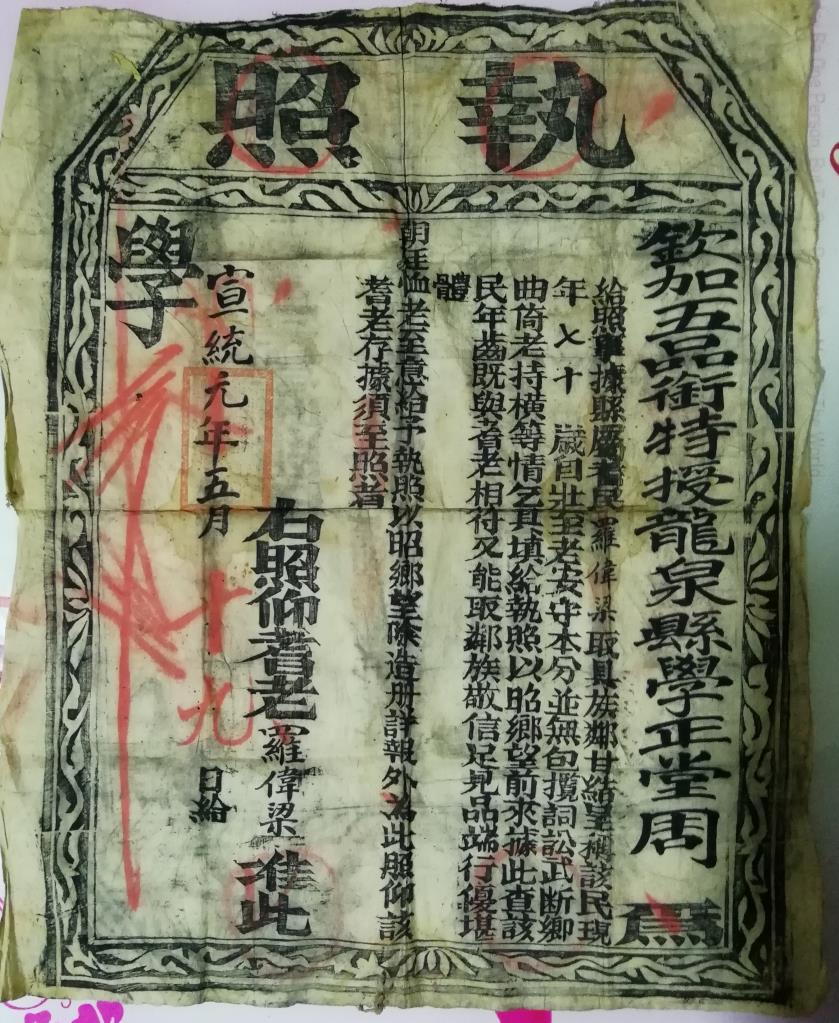 執照
欽加五品銜特授龍泉縣學正堂周 為
給照事據縣屬耆民羅偉梁取具族鄰甘結呈稱該民現
年七十歲自壯至老安守本分並無包攬詞訟武断鄉
曲倚老持橫等情乞具填給執照以昭鄉望前來據此查該
民年齒既與耆老相符又能取鄰族敬信足見品端行優堪
體
朝廷恤老至意給予執照以昭鄉望除造册詳報外為此照仰該
耆老存據須至照者
右照仰耆老羅偉梁准此
宣統元年五月十九日給
學